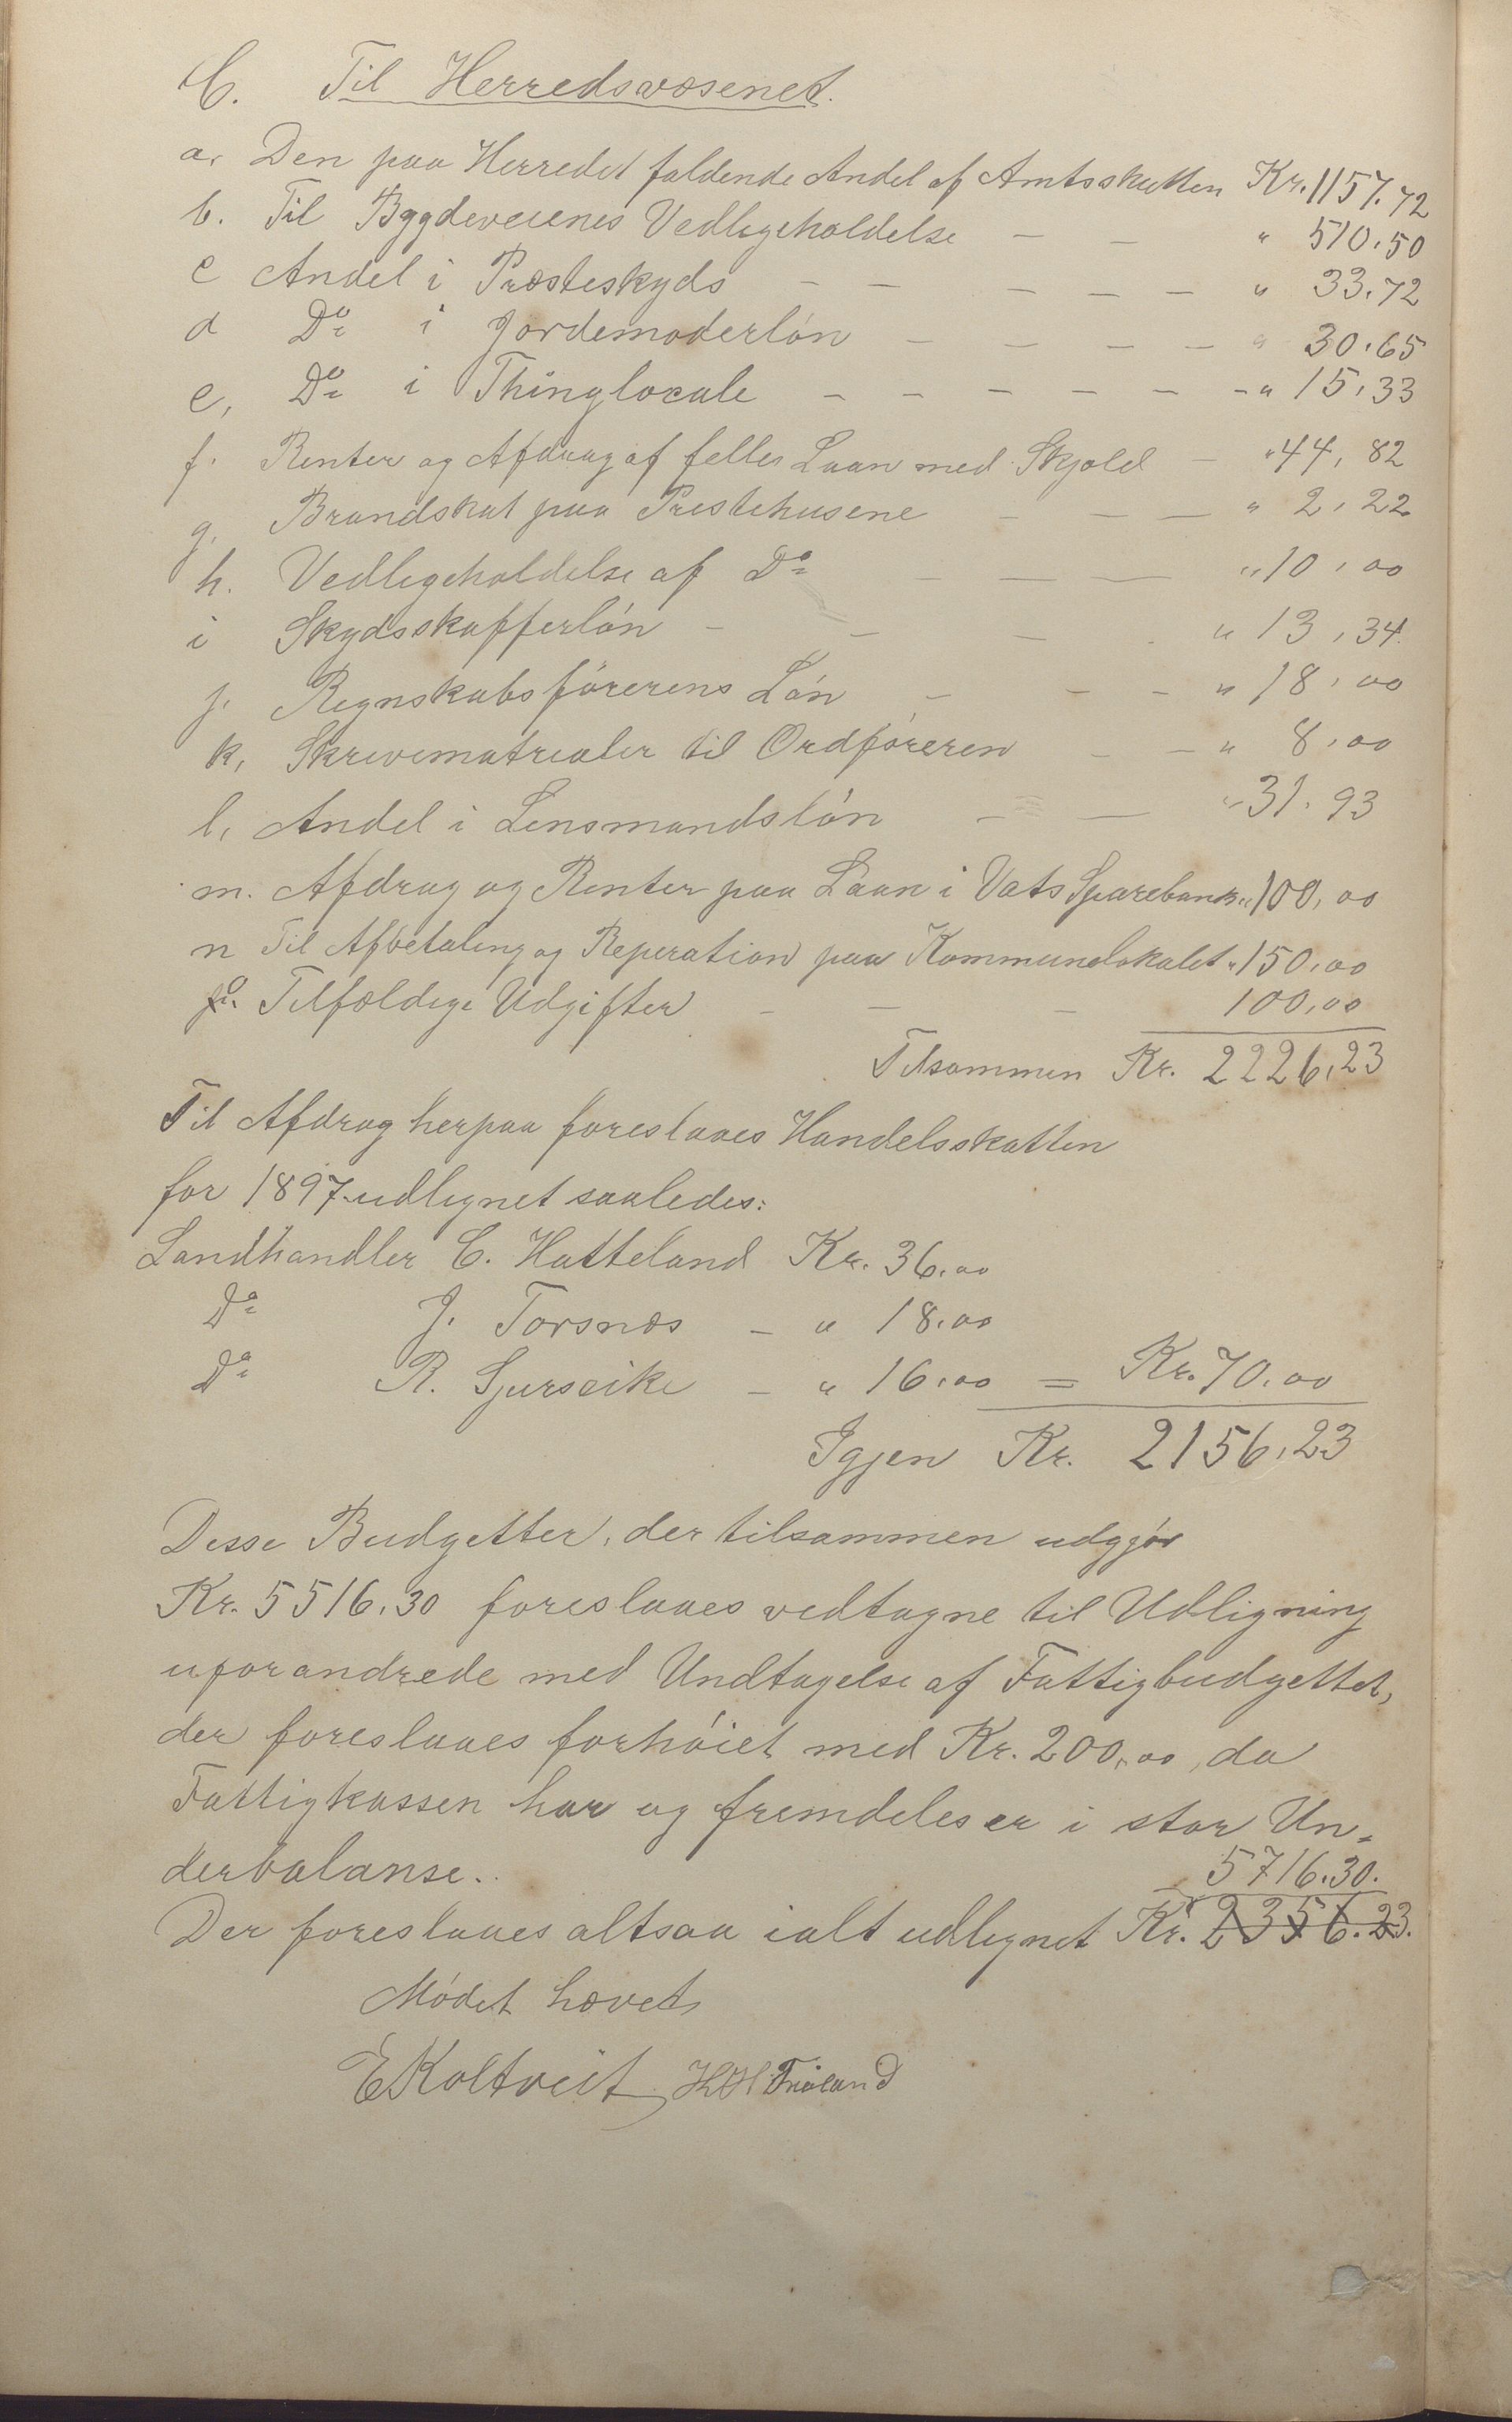 C. Til Herredsvæsenet.
a. Den paa Herredet faldende Andel af Amtsskatten Kr. 1157.72
b. Til Bygdeveienes Vedligeholdelse — — " 510.50
c Andel i Præsteskyds — — — — — " 33.72
d Do i Jordemoderløn — — — — " 30.65
e, Do i Thinglocale — — — — — - " 15.33
f. Renter og Afdrag af felles Laan med Skjold — " 44,82
g. Brandskat paa Prestehusene — — — " 2.22
h. Vedligeholdelse af Do — — — " 10.00
i Skydsskafferløn — — — " 13.34
j. Regnskabsførerens Løn — — - " 18.00
k, Skrivematrialer til Ordføreren — — " 8.00
l, Andel i Lensmandsløn — — " 31.93
m. Afdrag og Renter paa Laan i Vats Sparebank " 100,00
n Til Afbetaling og Reperation paa Kommunelokalet " 150,00
o. Tilfældige Udgifter — — — 100,00
Tilsammen Kr. 2226,23
Til Afdrag herpaa foreslaaes Handelsskatten
for 1897 udlignet saaledes:
Landhandler C. Hatteland Kr. 36.00
Do J. Torsnæs — " 18.00
Do R. Sjurseike — " 16.00 = Kr. 70.00
Igjen Kr. 2156,23
Desse Budgetter, der tilsammen udgjør
Kr. 5516.30 foreslaaes vedtagne til Udligning
uforandrede med Undtagelse af Fattigbudgettet,
der foreslaaes forhøiet med Kr. 200,00, da
Fattigkassen har og fremdeles er i stor Un-
derbalanse.
5716.30.
Der foreslaaes altsaa ialt udlignet Kr. 2356.23.
Mødet hævet
E Koltveit H H Frøland